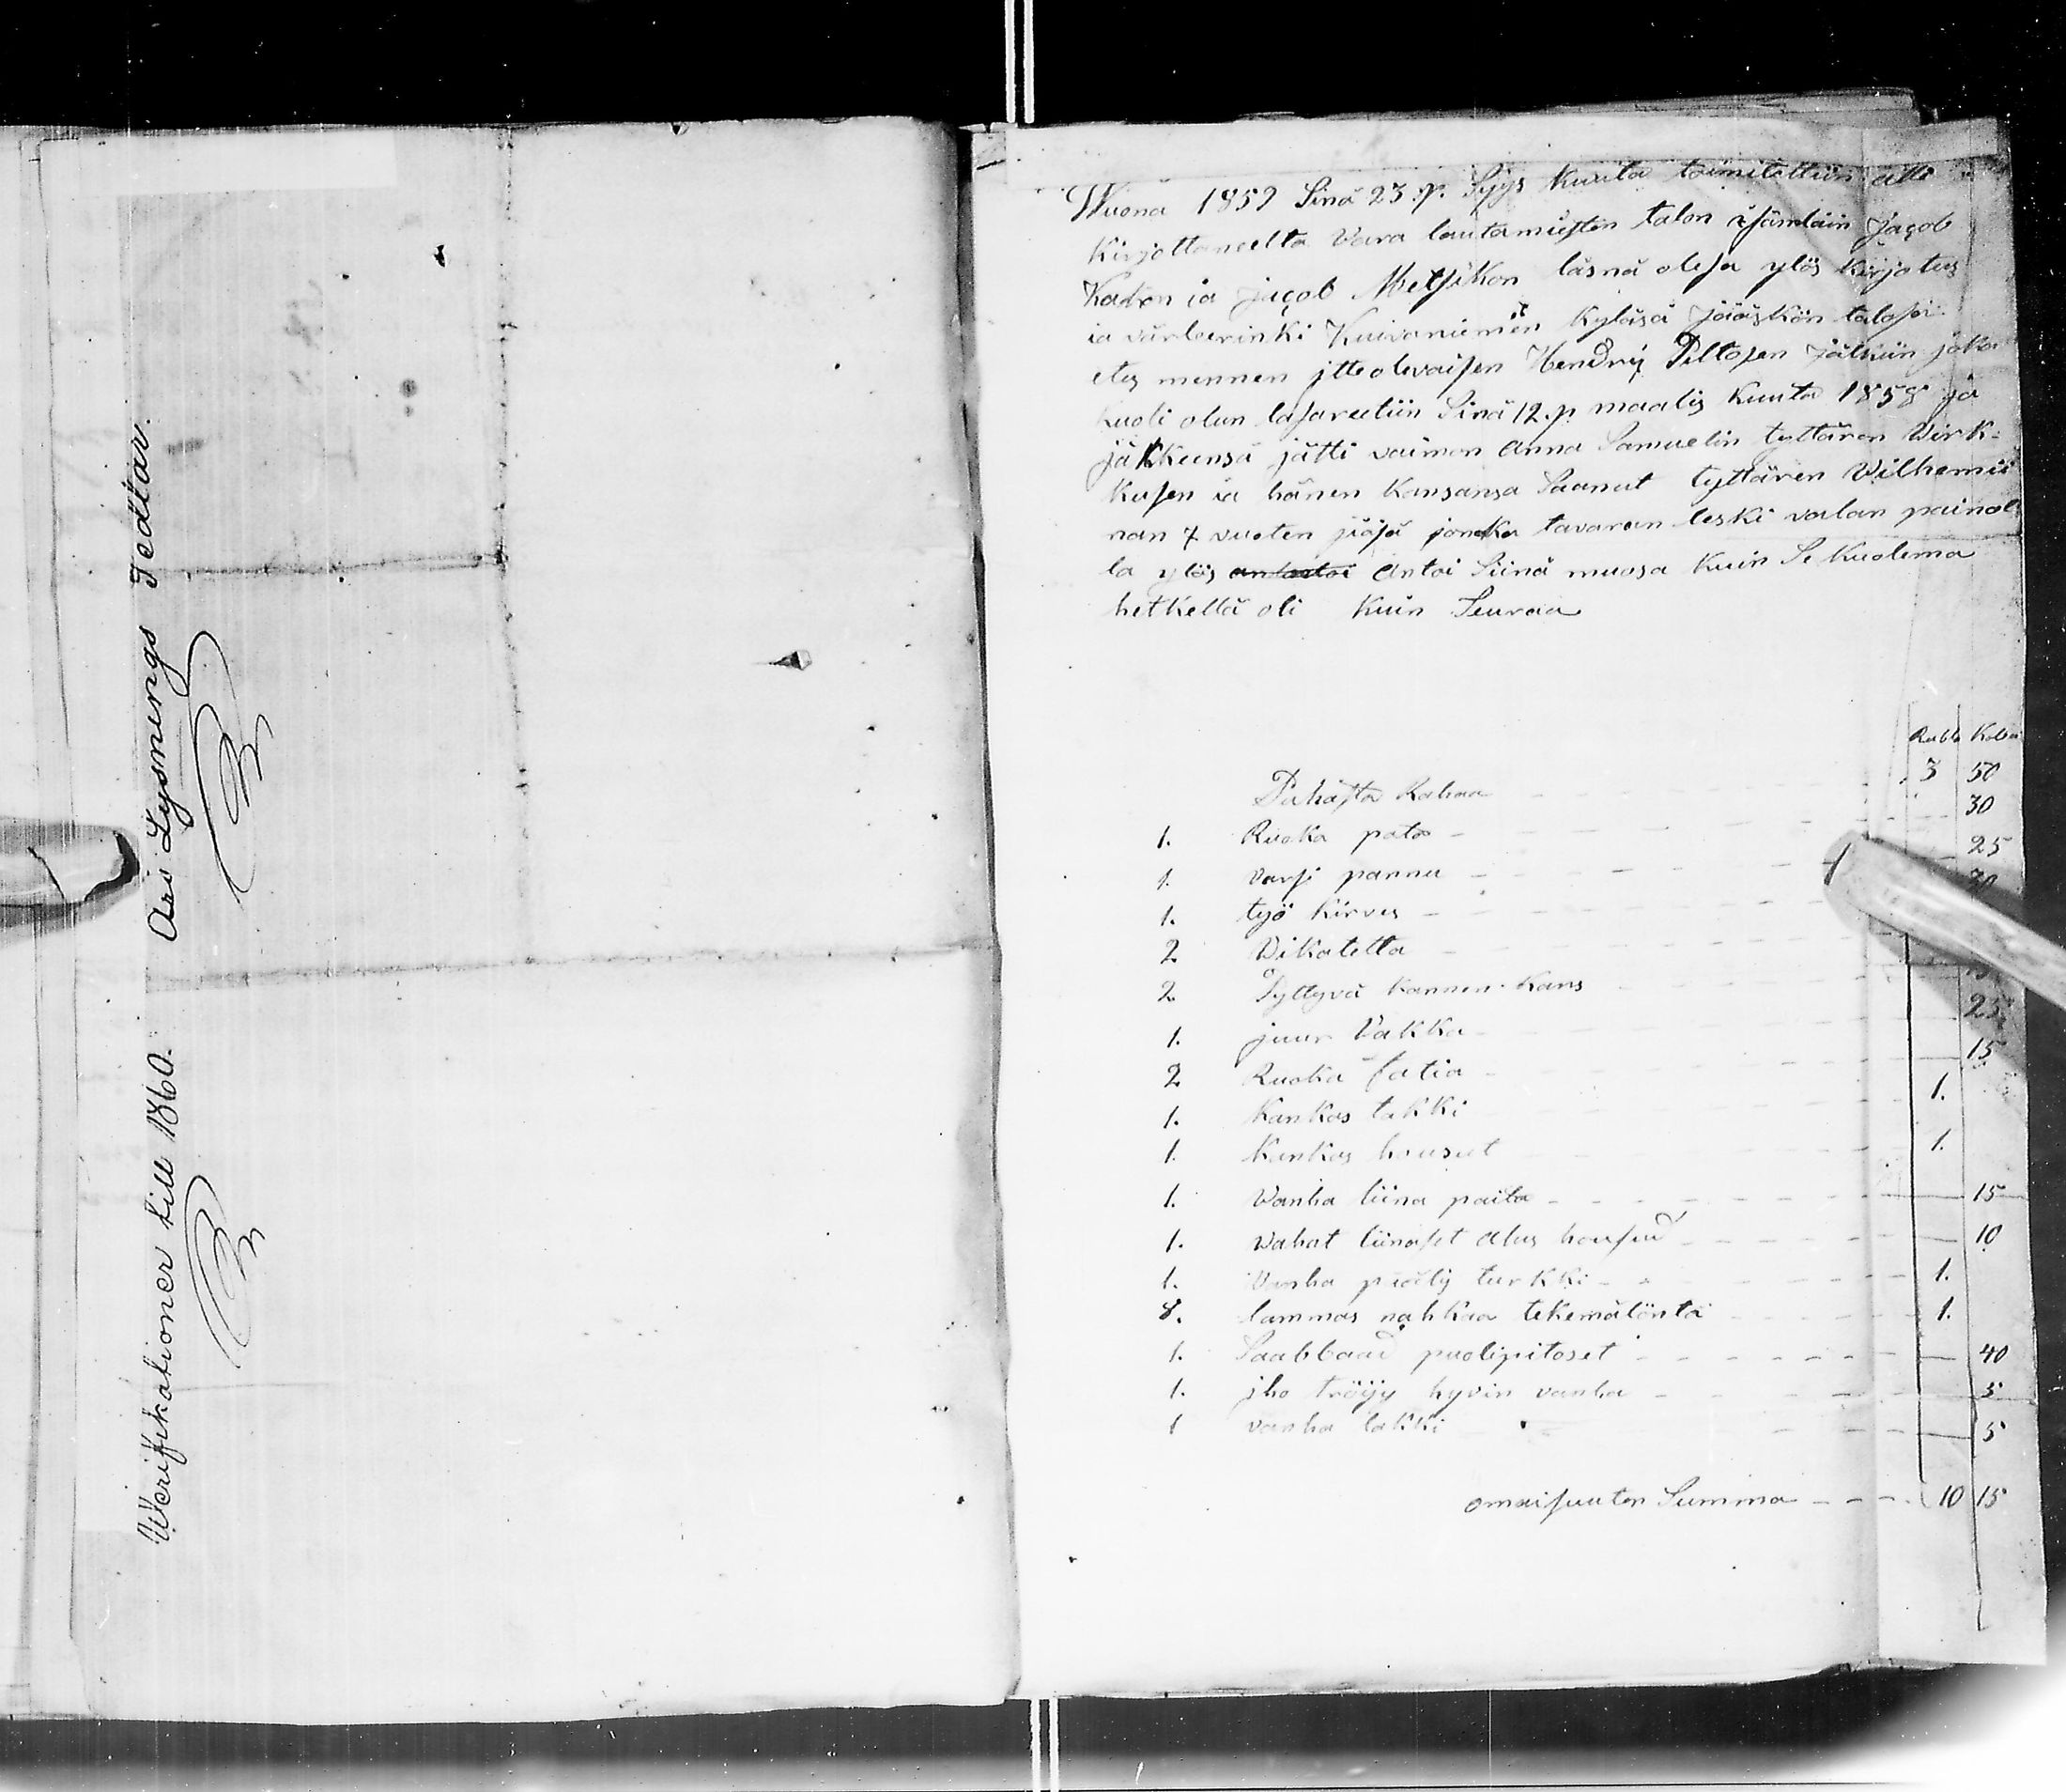 Werifikationer till 1860. Års Lysnings Tedlar.
Wuona 1859 Sinä 23 .p. Syys kuuta toimitettiin alle
Kirjottaneelta Vara lautamiesten talon isäntäin Jacob
Katon ia jacob Metsikon läsnä olesa ylös kirjotus
ia värteerinki Kuivaniemen kyläsä Jääskön talosa
etes mennen jtteolevaisen Hendrij Peltosen jälkiin joka
kuoli olun lasareetiin Sinä 12.p maalis kuuta 1858 ja
jälkkeensä jätti vaimon Anna Samuelin tyttären Wirk=
kusen ia hänen kansansa Saanut tyttären Wilhemii
nan 7 vuoten jääsä jonka tavaran leski valan painol
la ylös antoi Siinä muosa kuin Se kuolema
hetkellä oli kuin Seuraa
Rubla Kobia
Puhasta Rahaa 3 50
1. Ruoka pata 30
1. varsi pannu 25
1. työ kirves 30
2 Wikatetta
2 Pyttyvä kannen kans
1. juur Vakka 25
2 Ruoka fatia 15
1. kankas takki 1.
1. kankas housut 1.
1. Vanha liina paita 15
1. Wahat liinaset alus housud 10
1. Vanha pääly turkki 1.
8. lammas nahkaa tekemätöntä 1.
1. Saabbaad puolipitoset 40
1. jho tröijy hyvin vanha 5
1 vanha lakki 5
omaisuuten Summa 10 15